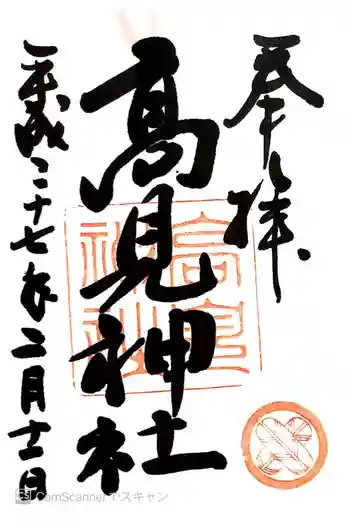 奉拝
高見神社
平成二十七年二月十一日
CS CamScanner でスキャン